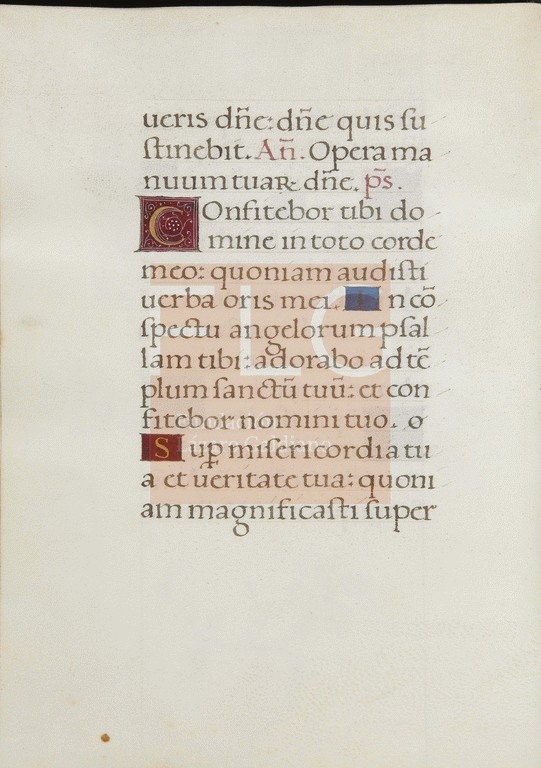 ueris dñe: dñe quis ſu
ſtinebit. Añ. Opera ma
nuum tuaꝝ dñe. p̄s.
Confitebor tibi do
mine in toto corde
meo: quoniam audiſti
uerba oris mei. In cō
ſpectu angelorum pſal
lam tibi: adorabo ad tē
plum ſanctū tuū: et con
fitebor nomini tuo. o
Sup̱ miſericordia tu
a et ueritate tua: quoni
am magnificaſti ſuper